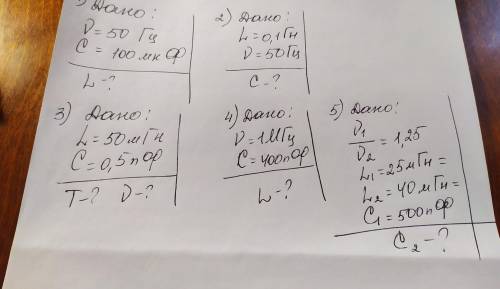 1) Дано:
D = 50 Гц
C = 100 мкФ
L - ?
2) Дано:
L = 0,1 Гн
D = 50 Гц
C - ?
3) Дано:
L = 50 мГн
C = 0,5 пФ
T - ? D - ?
4) Дано:
D = 1 МГц
C = 400 пФ
L - ?
5) Дано:
D₁
/
D₂ = 1,25
L₁ = 25 мГн =
L₂ = 40 мГн =
C₁ = 500 пФ
C₂ - ?